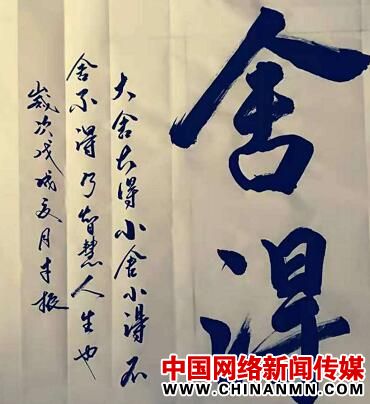 舍得
大舍大得小舍小得不
舍不得乃智慧人生也
歲次戊戌夏月
中国网络新闻传媒
WWW.CHINANMN.COM